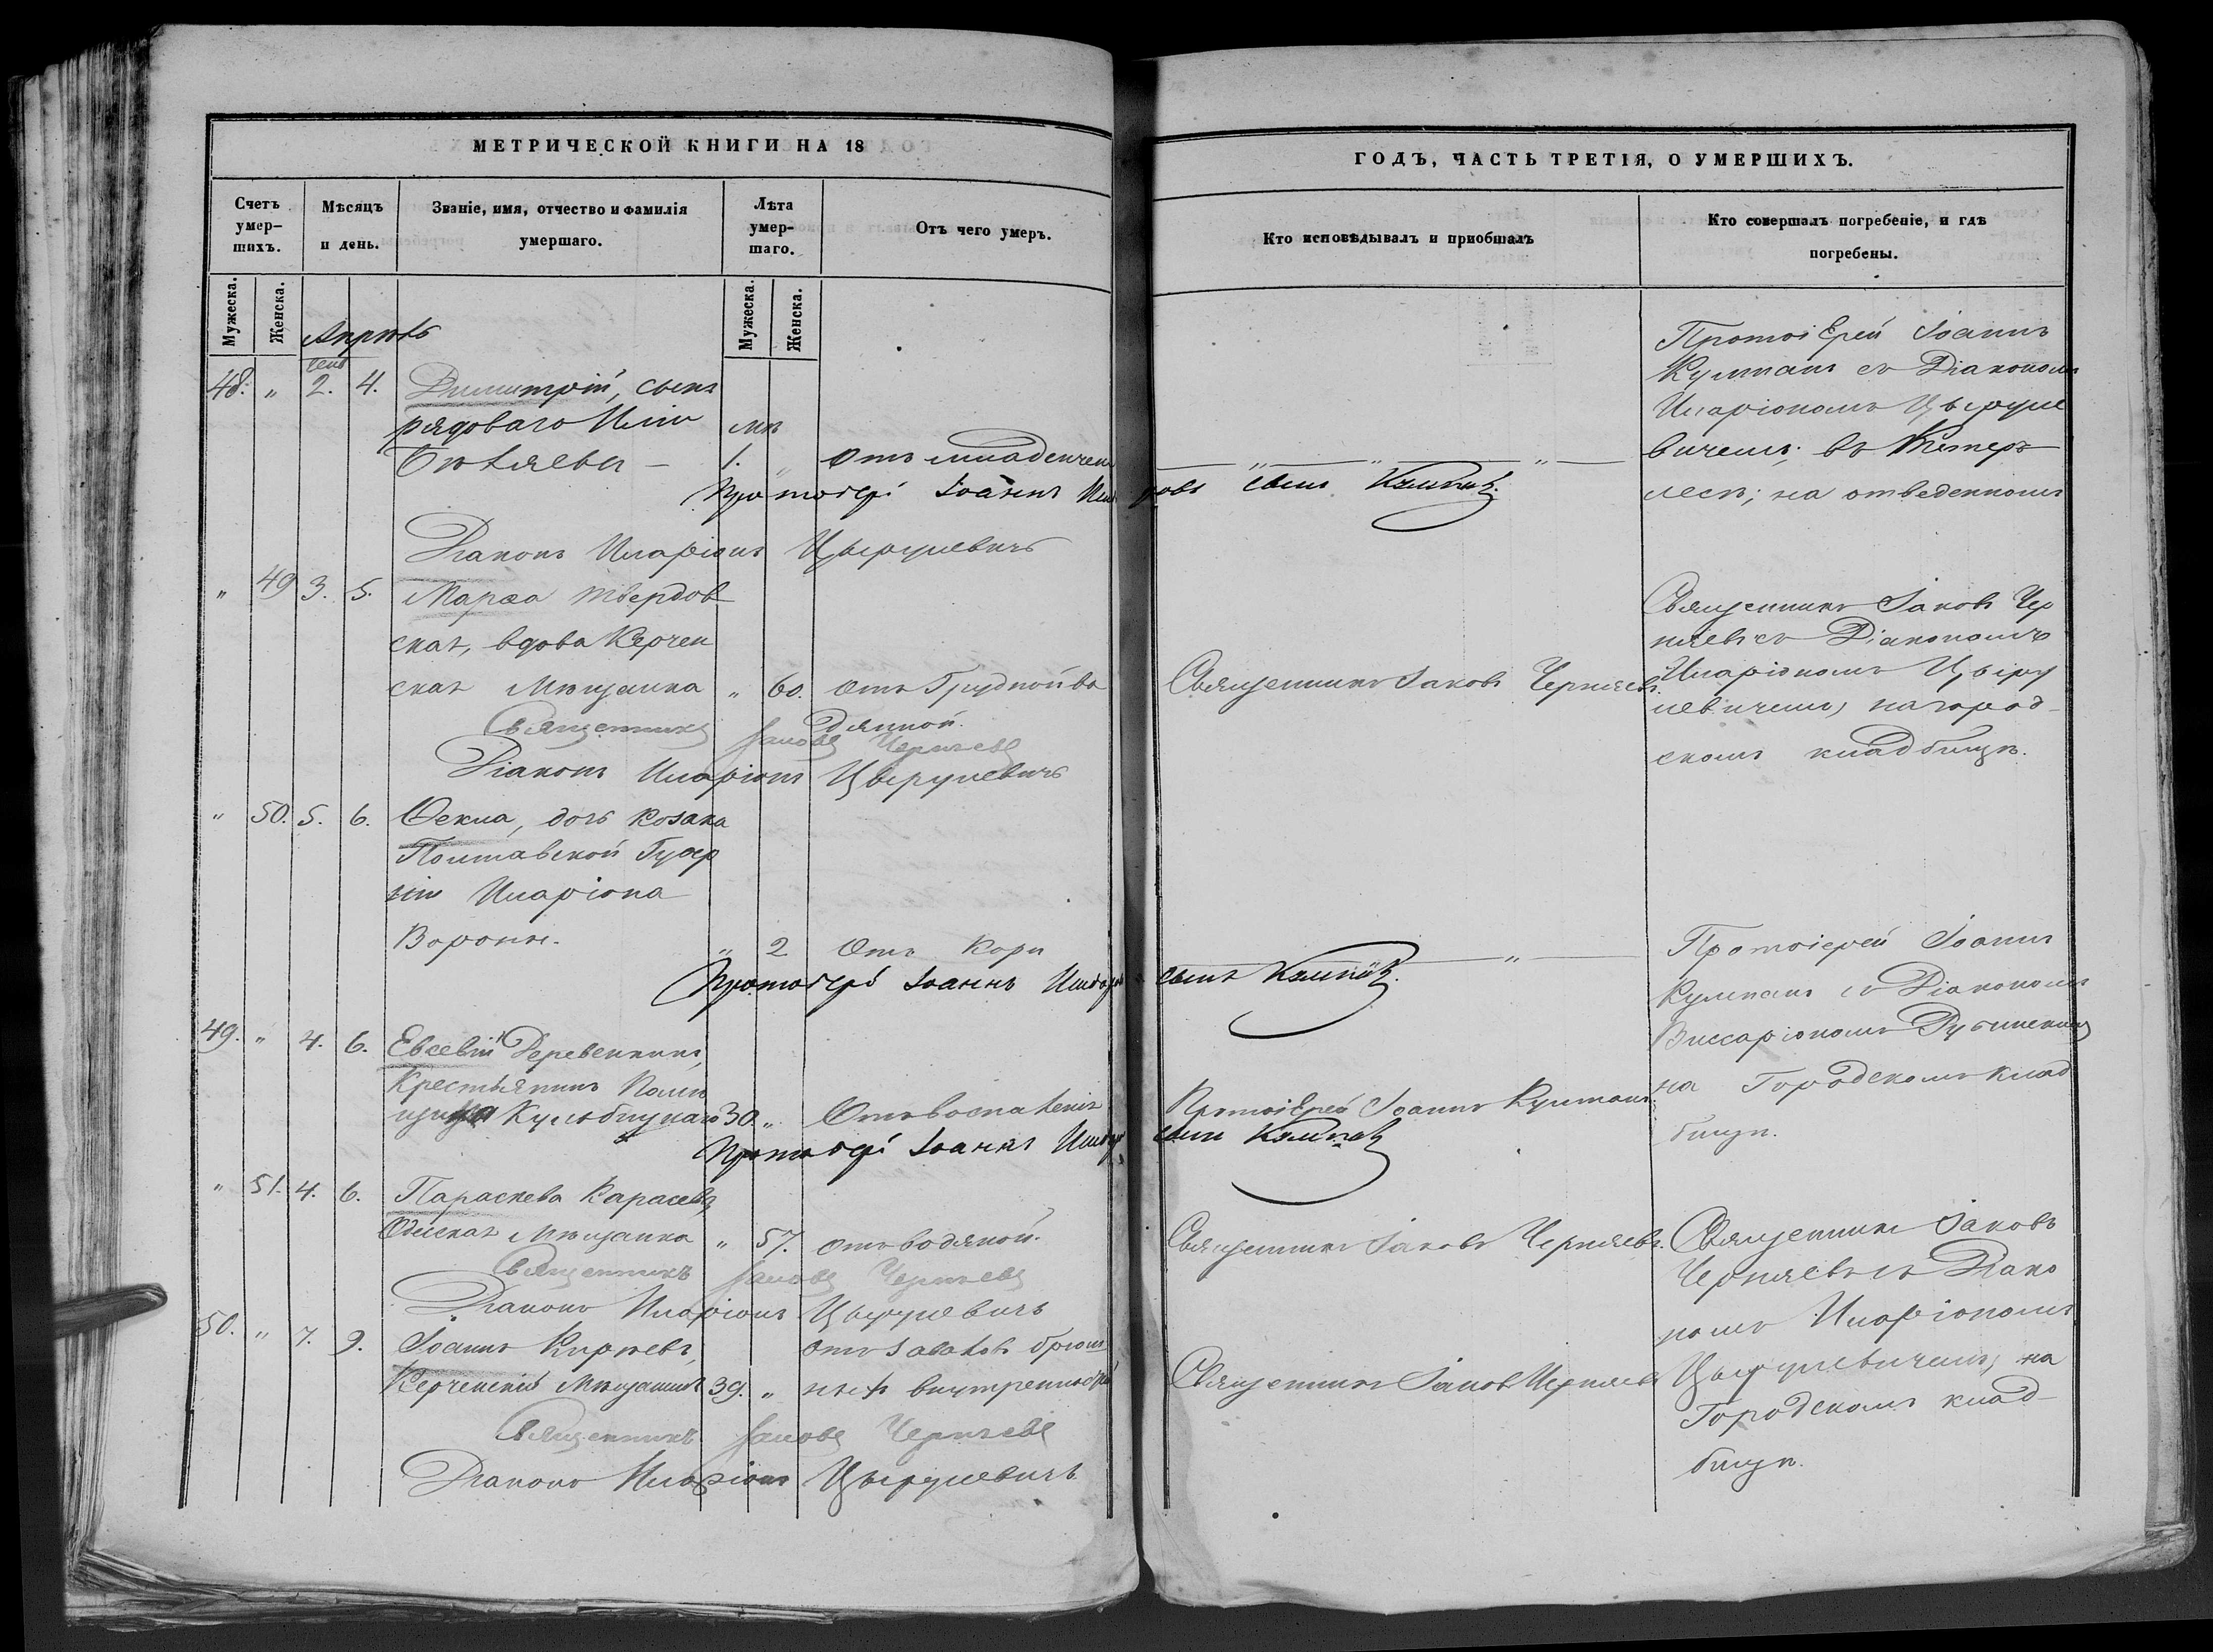 МЕТРИЧЕСКОЙ КНИГИ НА 18
Счетъ умер-шихъ.
Мѣсяцъ и день.
Званіе, имя, отчество и фамилія умершаго.
Лѣта умер-шаго.
Отъ чего умеръ.
Мужеска.
Женска.
Мужеска.
Женска.
Апрѣль
48. " 2. 4. Димитрій, сынъ
рядоваго Иліи
мц
1. " отъ младенчес
Протоіерей Іоаннъ
Діаконъ Иларіонъ Цырулевичъ
" 49 3. 5. Марѳа Твердов
ская, вдова Керчен
ская Мѣщанка " 60. отъ Грудной во
дянной.
Священникъ Іаковъ Черняевъ
Діаконъ Иларіонъ Цырулевичъ
" 50. 5. 6. Ѳекла, дочь козака
Полтавской Губер
ніи Иларіона
Вороны. " 2 отъ кори
Протоіерей Іоаннъ
49. " 4. 6. Евсевій Деревенникъ,
Крестьянинъ Помѣ
щика Кульбицкаго 30. " Отъ воспаленія
Протоіерей Іоаннъ
" 51. 4. 6. Параскева Карасева,
Одесская Мѣщанка " 57. отъ водяной.
Священникъ Іаковъ Черняевъ
Діаконъ Иларіонъ Цырулевичъ
50. " 7. 9. Іоаннъ Кирѣевъ, отъ заваловъ брюш
Керченскій Мѣщанинъ 39. " ныхъ внутренностей
Священникъ Іаковъ Черняевъ
Діаконъ Иларіонъ Цырулевичъ
ГОДЪ, ЧАСТЬ ТРЕТІЯ, О УМЕРШИХЪ.
Кто исповѣдывалъ и приобщалъ
Кто совершалъ погребеніе, и гдѣ погребены.
Протоіерей Іоаннъ
Кумпанъ съ Діакономъ
Иларіономъ Цыруле
вичемъ; въ
лесѣ; на отведенномъ
сынъ
Священникъ Іаковъ Чер
няевъ съ Діакономъ
Священникъ Іаковъ Черняевъ. Иларіономъ Цыру
левичемъ, на город
скомъ кладбищѣ.
Протоіерей Іоаннъ
сынъ
Кумпанъ съ Діакономъ
Виссаріономъ
на Городскомъ клад
Протоіерей Іоаннъ Кумпанъ.
сынъ
бищѣ.
Священникъ Іаковъ Черняевъ. Священникъ Іаковъ
Черняевъ съ Діако
номъ Иларіономъ
Священникъ Іаковъ Черняевъ Цырулевичемъ, на
Городскомъ клад
бищѣ.